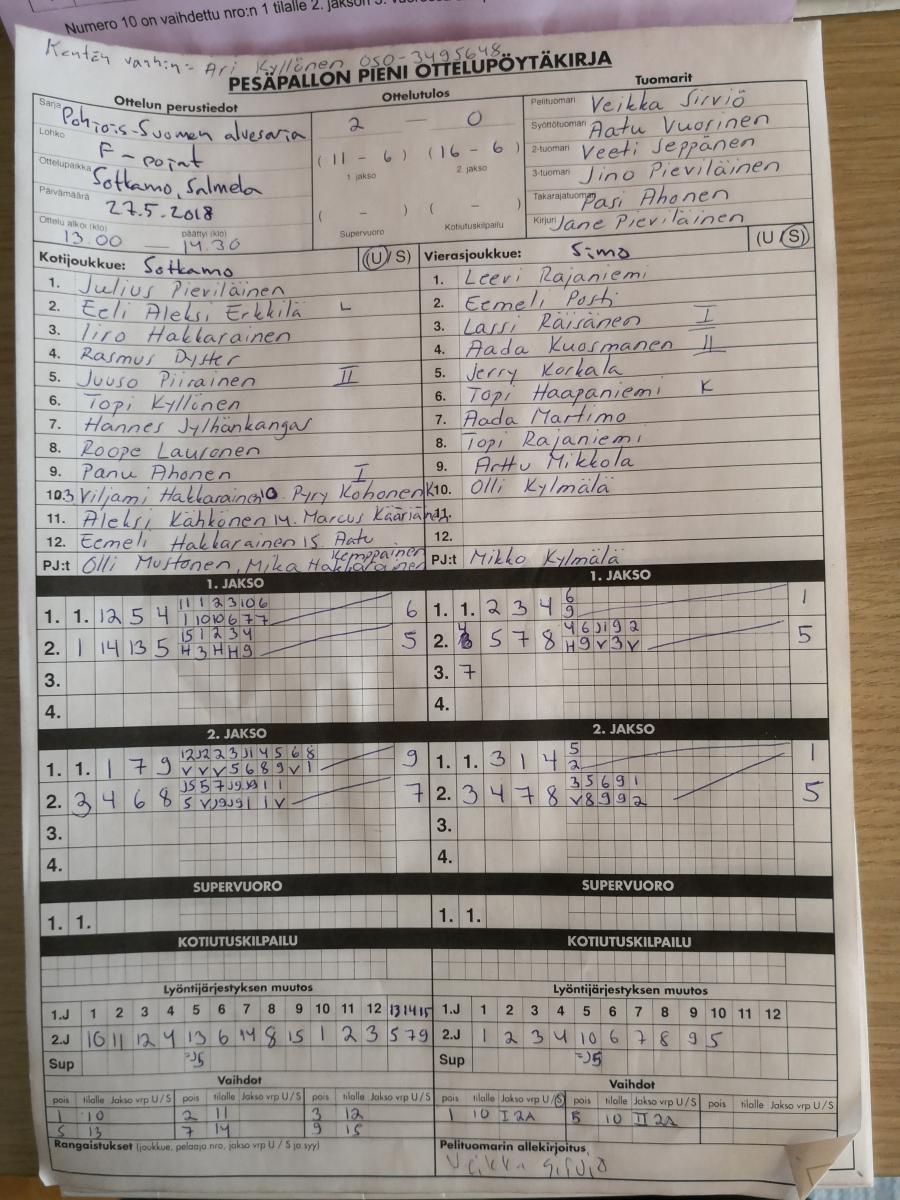 Numero 10 on vaihdettu nro:n 1 tilalle 2. jakson
Kentän vanhin:- Ari Kyllönen 050-3495648
PESÄPALLON PIENI OTTELUPÖYTÄKIRJA
Ottelun perustiedot
Sarja Pohjois-Suomen aluesarja
Lohko F-pojat
Ottelupaikka Sotkamo, Salmela
Päivämäärä 27.5.2018
Ottelu alkoi (klo) päättyi (klo)
13.00 — 14.30
Ottelutulos
2 — 0
( 11 - 6 ) ( 16 - 6 )
1 jakso 2. jakso
( - ) ( - )
Supervuoro Kotiutuskilpailu
Tuomarit
Pelituomari Veikka Sirviö
Syöttötuomari Aatu Vuorinen
2-tuomari Veeti Seppänen
3-tuomari Jino Pieviläinen
Takarajatuomari Pasi Ahonen
Kirjuri Jane Pieviläinen
Kotijoukkue: Sotkamo (U/S)
1. Julius Pieviläinen
2. Eeli Aleksi Erkkilä L
3. Iiro Hakkarainen
4. Rasmus Dyster
5. Juuso Piirainen II
6. Topi Kyllönen
7. Hannes Jylhänkangas
8. Roope Lauronen
9. Panu Ahonen I
10. Viljami Hakkarainen Pyry Kohonen
11. Aleksi Kähkönen 14. Marcus Kääriänen
12. Eemeli Hakkarainen 15. Aatu Kemppainen
PJ:t Olli Mustonen, Mika Hakkarainen
Vierasjoukkue: Simo (U/S)
1. Leevi Rajaniemi
2. Eemeli Posti
3. Lassi Räisänen I
4. Aada Kuosmanen II
5. Jerry Korkala
6. Topi Haapaniemi K
7. Aada Martimo
8. Topi Rajaniemi
9. Arttu Mikkola
10. Olli Kylmälä
11.
12.
PJ:t Mikko Kylmälä
1. JAKSO
1. 1. 12 5 4 11 1 2 3 10 6 6
1 10 10 6 7 7
2. 1 14 13 5 15 1 2 3 4 5
H 3 H H 9
3.
4.
1. JAKSO
1. 1. 2 3 4 6 1
9
2. 5 7 8 5
3. 7
4.
2. JAKSO
1. 1. 1 7 9 9
2. 3 4 6 8 7
3.
4.
2. JAKSO
1. 1. 3 1 4 5 1
2
2. 3 4 7 8 3 5 6 9 1 5
V 8 9 9 2
3.
4.
SUPERVUORO
1. 1.
SUPERVUORO
1. 1.
KOTIUTUSKILPAILU
KOTIUTUSKILPAILU
Lyöntijärjestyksen muutos
1.J 1 2 3 4 5 6 7 8 9 10 11 12 13 14 15
2.J 10 11 12 4 13 6 14 8 15 1 2 3 5 7 9
Sup =J5
Lyöntijärjestyksen muutos
1.J 1 2 3 4 5 6 7 8 9 10 11 12
2.J 1 2 3 4 10 6 7 8 9 5
Sup =J5
Vaihdot
pois tilalle Jakso vrp U/S pois tilalle Jakso vrp U/S pois tilalle Jakso vrp U/S
1 10 2 11 3 12
5 13 7 14 9 15
Vaihdot
pois tilalle Jakso vrp U/S pois tilalle Jakso vrp U/S pois tilalle Jakso vrp U/S
1 10 I 2A 5 10 II 2A
Rangaistukset (joukkue, pelaaja nro, jakso vrp U / S ja syy)
Pelituomarin allekirjoitus
Veikka Sirviö